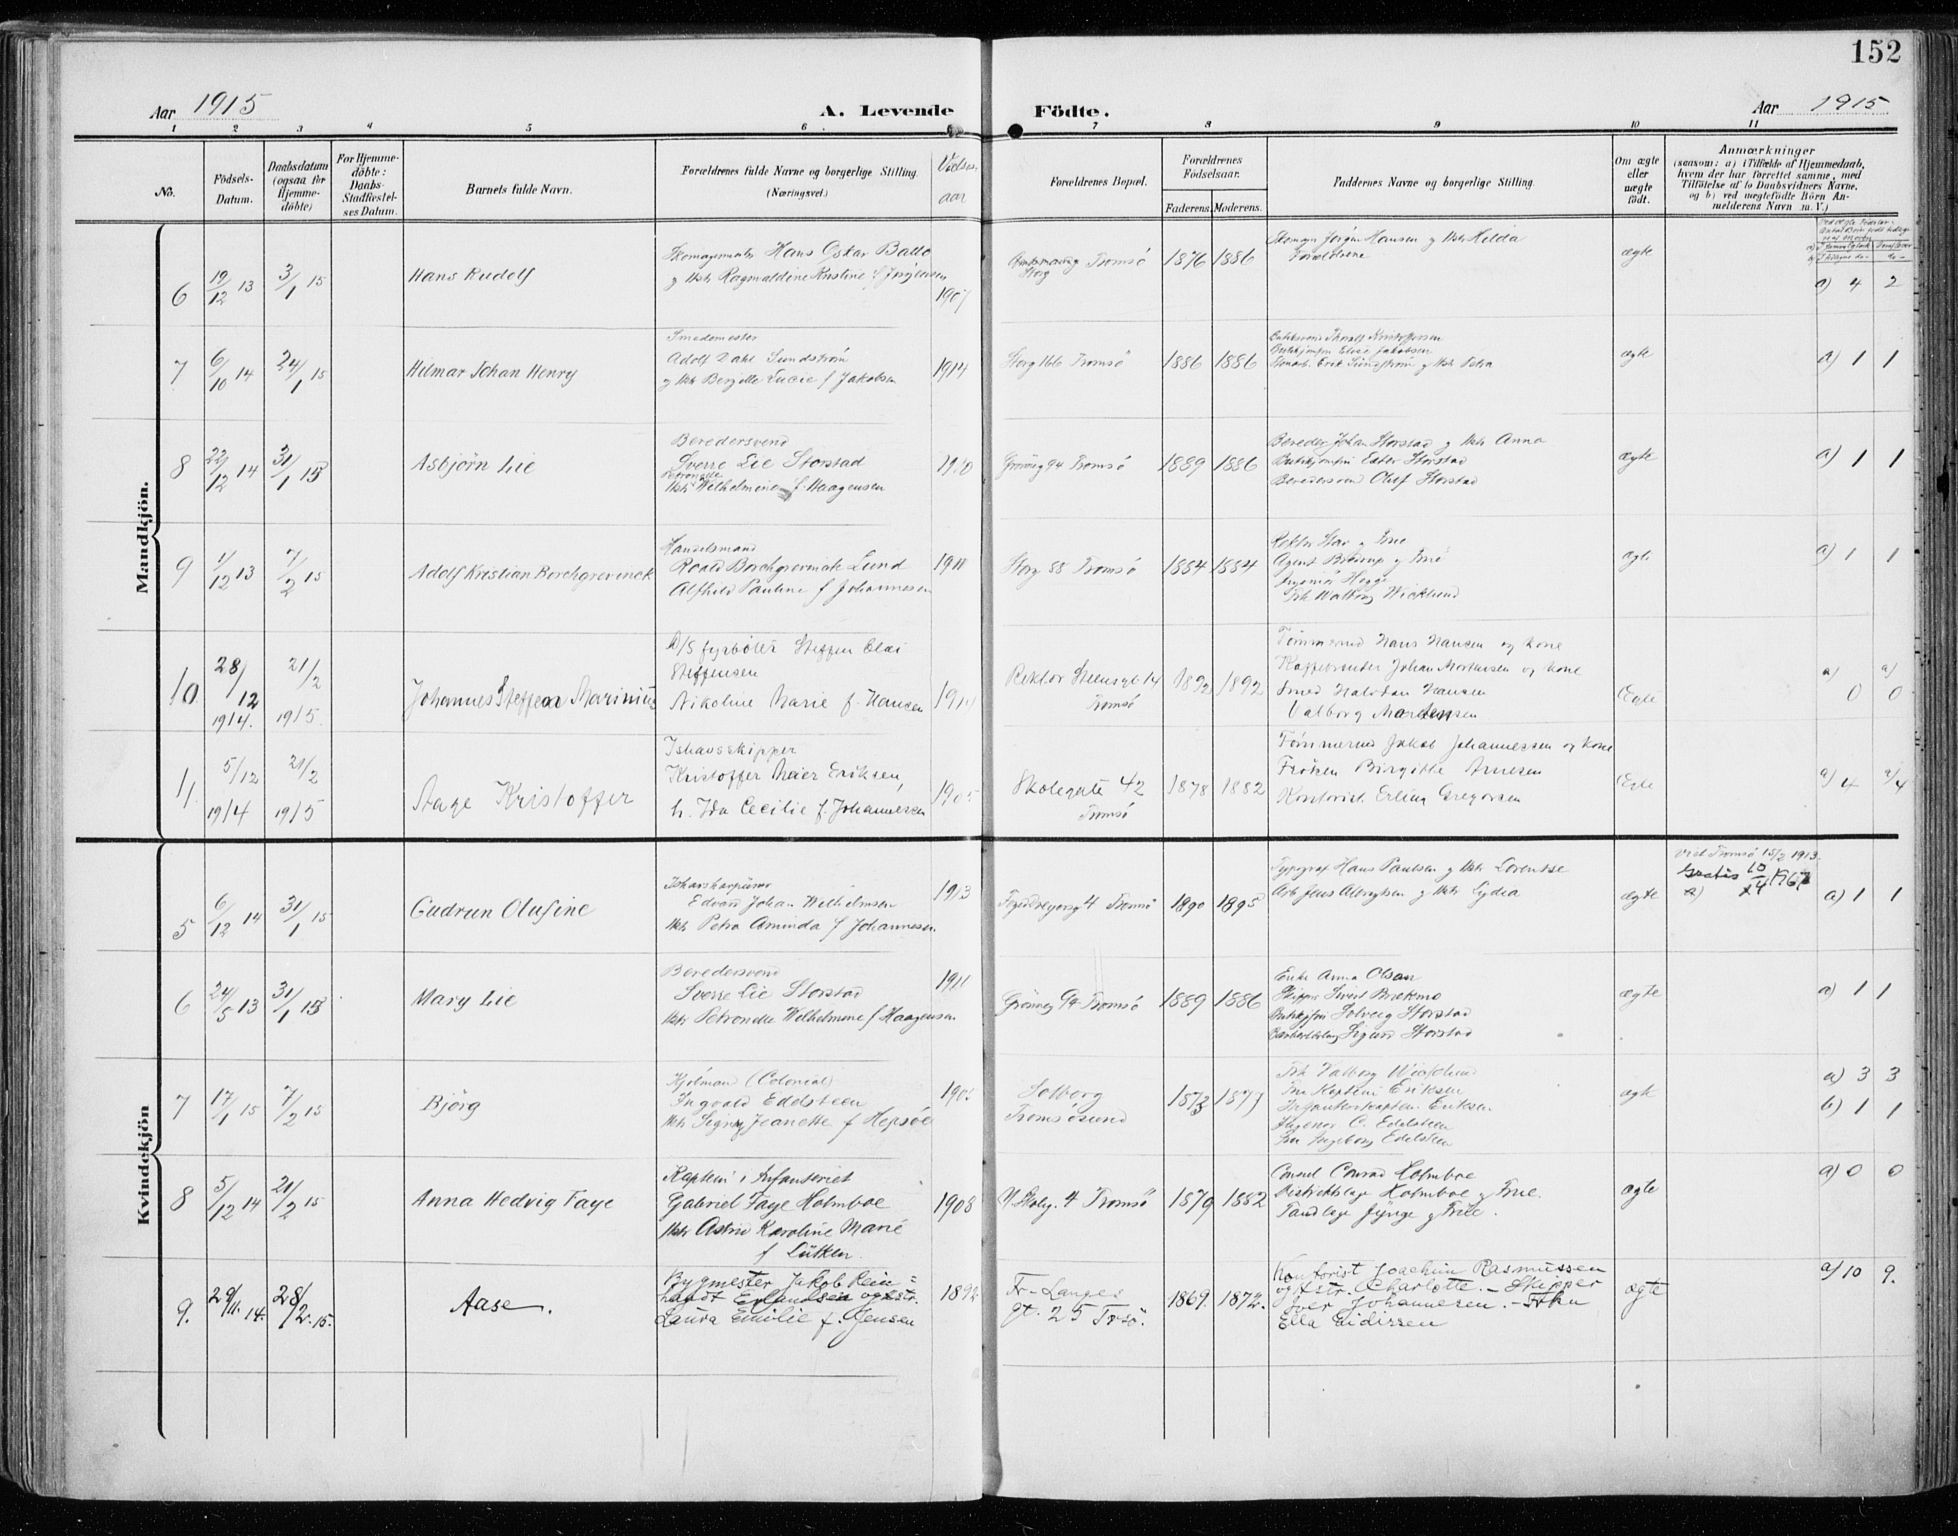 152
Aar 1915
A. Levende Födte.
Aar 1915
1 2 3 4 5 6 7 8 9 10 11
No.
Födsels-Datum.
Daabsdatum (ogsaa for Hjemme-döbte)
For Hjemme-döbte: Daabs-Stadfæstel-ses Datum.
Barnets fulde Navn.
Forældrenes fulde Navne og borgerlige Stilling. (Næringsvei.)
Vielses aar
Forældrenes Bopæl.
Forældrenes Födselsaar.
Faderens. Moderens.
Faddernes Navne og borgerlige Stilling.
Om ægte eller uægte födt.
Anmærkninger
(saasom: a) i Tilfælde af Hjemmedaab,
hvem der har forrettet samme, med
Tilföielse af to Daabsvidners Navne,
og b) ved uægtefödte Börn An-
melderens Navn m. V.)
Mandkjön.
6 19/12 13 3/1 15 Hans Rudolf
Skomagermester Hans Oskar Ballo
og Hstr Ragnvaldine Kristine f Jørgensen
1907
Tromsö 1876 1886
Jørgen Hansen og Hstr Hilda
Forældrene
ægte
a) 4 2
7 6/10 14 24/1 15 Hilmar Johan Henry
Smedemester
Adolf Dahl Sundström
og Hstr Bergitte Lucie f Jakobsen
1914
Storg 166 Tromsö 1886 1886
Kristoffersen
Jakobsen
Erik Sundström og Hstr Petra
ægte
a) 1 1
8 22/12 14 31/1 15 Asbjörn Lie
Beredersvend
Sverre Lie Storstad
Petronelle
Hstr Wilhelmine f. Haagensen
1910
Grönneg 94 Tromsö 1889 1886
Bereder Johan Storstad og Hstr Anna
Butikjomfru Ester Storstad
Beredersvend Oluf Storstad
ægte
a) 1 1
9 1/12 13 7/2 15 Adolf Kristian Borchgrevinck
Handelsmand
Roald Borchgrevinck Lund
Alfhild Pauline f Johannesen
1911
Storg 88 Tromsö 1884 1884
Rektor og Frue
Agent og Frue
Hegge
Frk Walborg Wicklund
ægte
a) 1 1
10 28/12 1914. 21/2 1915. Johannes Steffen Marinius
D/S fyrböter Steffen Olai
Steffensen
Nikoline Marie f. Hansen
1914
Rektor Steensgt 14
Tromsö
1892 1892
Tömmermd Hans Hansen og kone
Johan Mortensen og kone
Smed Halvdan Hansen
Valborg Mortensen
Ægte
a) 0 a) 0
11. 5/12 1914 21/2 1915 Aage Kristoffer
Ishavsskipper
Kristoffer Meier Eriksen
h. Ida Cecilie f. Johannessen
1905
Skolegate 42
Tromsö
1878 1882
Tömmermd Jakob Johannessen og kone
Fröken Birgitte Arnesen
Kontorist Erling Gregorsen
Ægte
a) 4 a) 4
Kvindekjön
5 6/12 14 31/1 15 Gudrun Olufine
Ishavsharpuner
Edvard Johan Wilhelmsen
Hstr Petra Aminda f Johannesen
1913
4 Tromsö 1890 1895
Typograf Hans Paulsen og Hstr Lorentse
Arb Jens Albrigtsen og Hstr Lydia
ægte
Viet Tromsö 15/2 1913.
Gratis 10/4 1967
a) 1 1
6 24/5 13 31/1 15 Mary Lie
Beredersvend
Sverre Lie Storstad
Hstr Petronelle Wilhelmine f Haagensen
1911
Grönneg 94 Tromsö 1889 1886
Enke Anna Olsen
Skipper Sivert Brækmo
Solveig Storstad
Sigurd Storstad
ægte
a) 1 1
7 17/1 15 7/2 15 Björg
Kjöbmand (Colonial)
Ingvald Edelsteen
Hstr Signy Jeanette f Hepsöe
1905
Solberg
Tromsösund
1873 1877
Frk Valborg Wicklund
Fru Kaptein Eriksen
Infanterikaptein Eriksen
C. Edelsteen
Fru Ingeborg Edelsteen
ægte
a) 3 3
b) 1 1
8 5/12 14 21/2 15 Anna Hedvig Faye
Kaptein i Infanteriet
Gabriel Faye Holmboe
Hstr Astrid Karoline Marie
f Lütken
1908
4 Tromsö 1879 1882
Consul Conrad Holmboe
Distriktslæge Holmboe og Frue.
Tandlæge Jynge og Frue.
ægte
a) 0 0
9. 29/11. 14. 28/2. 15. Aase.
Bygmester Jakob Rein=
hardt Erlandsen og Hstr.
Laura Emilie f. Jensen
1892
Fr. Langes
gt. 25 Trsö.
1869. 1872.
Kontorist Joachim Rasmussen
og Hstr. Charlotte. – Skipper
Iver Johannesen. – Frkn
Ella Eidissen
ægte
a) 10 9.